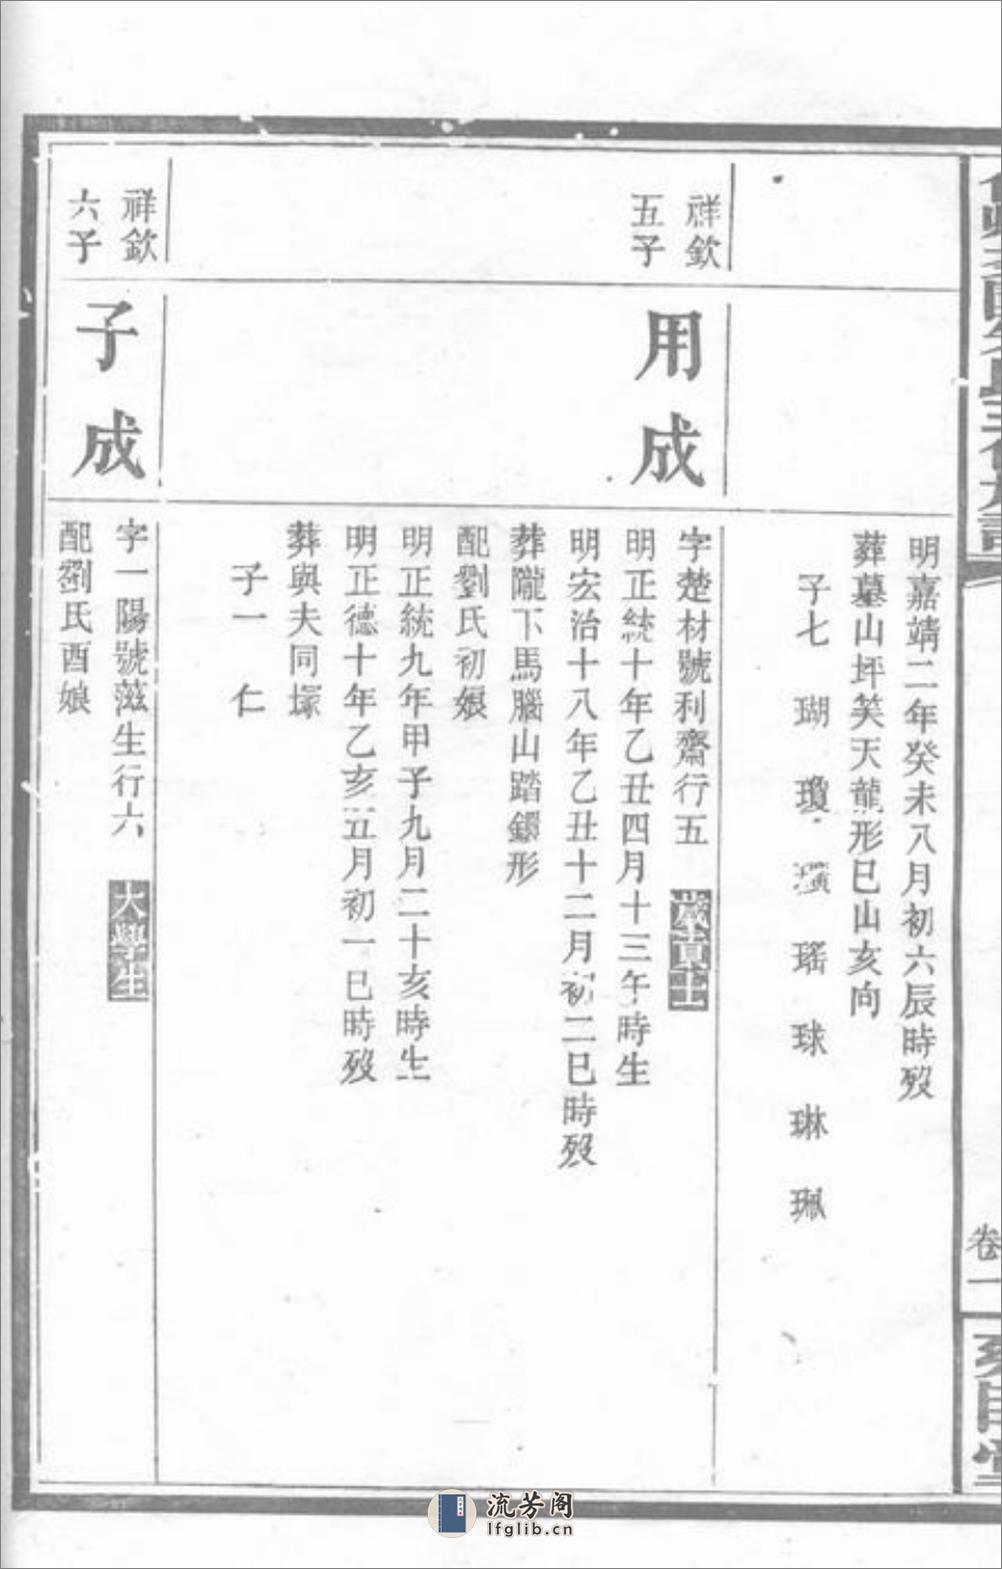 卷一
明嘉靖二年癸未八月初六辰時歿
葬墓山坪笑天龍形巳山亥向
子七 瑚 瓊 瑤 球 琳 珮
祥欽
五子
用成
字楚材號利齋行五 歲貢士
明正統十年乙丑四月十三午時生
明宏治十八年乙丑十二月初二巳時歿
葬隴下馬腦山踏鐙形
配劉氏初娘
明正統九年甲子九月二十亥時生
明正德十年乙亥五月初一巳時歿
葬與夫同塚
子一 仁
祥欽
六子
子成
字一陽號滋生行六 大學生
配劉氏酉娘
流芳阁
lfglib.cn